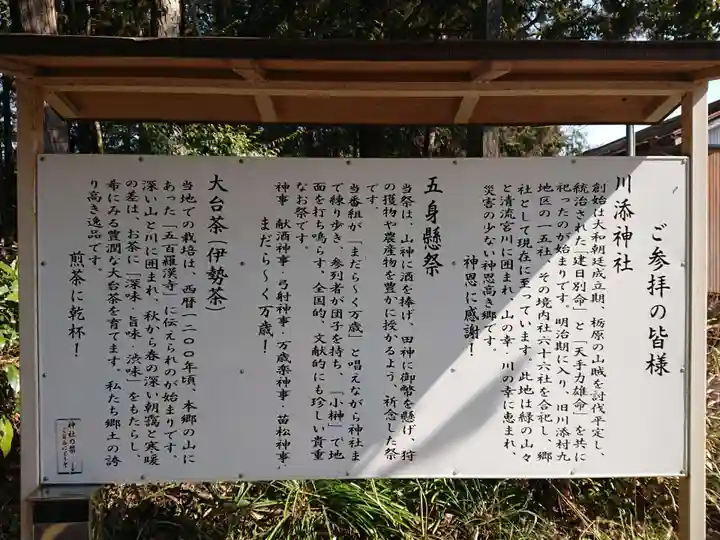 ご参拝の皆様
川添神社
創始は大和朝廷成立期、栃原の山賊を討伐平定し、
統治された「建日別命」と「天手力雄命」を共に
祀ったのが始まりです。明治期に入り、旧川添村九
地区の一五社、その境内社六十六社を合祀し、郷
社として現在に至っています。此地は緑の山々
と清流宮川に囲まれ、山の幸、川の幸に恵まれ、
災害の少ない神恩高き郷です。
神恩に感謝!
五身懸祭
当祭は、山神に酒を捧げ、田神に御幣を懸け、狩
の獲物や農産物を豊かに授かるよう、祈念した祭
です。
当番組が「まだら〜く万歳」と唱えながら神社ま
で練り歩き、参列者が団子を持ち、「小榊」で地
面を打ち鳴らす、全国的、文献的にも珍しい貴重
なお祭です。
神事・献酒神事・弓射神事・万歳楽神事・苗松神事・
まだら〜く万歳!
大台茶(伊勢茶)
当地での栽培は、西暦一二〇〇年頃、本郷の山に
あった「五百羅漢寺」に伝えられのが始まりです。
深い山と川に囲まれ、秋から春の深い朝靄と寒暖
の差は、お茶に「深味・旨味・渋味」をもたらし、
希にみる豊潤な大台茶を育てます。私たち郷土の誇
り高き逸品です。
煎茶に乾杯!
神社の栞